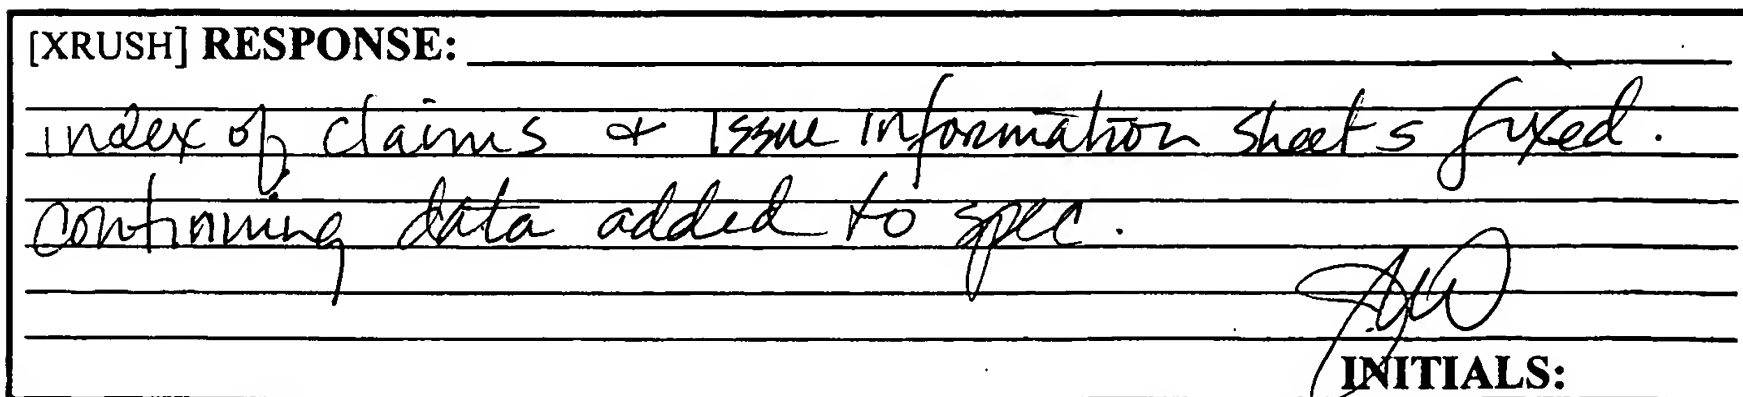 [XRUSH] RESPONSE:
index of claims & Issue information sheets fixed.
continuing data added to spec.
INITIALS: